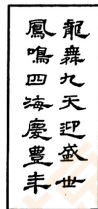 龍舞九天迎盛世
鳳鳴四海慶豊年